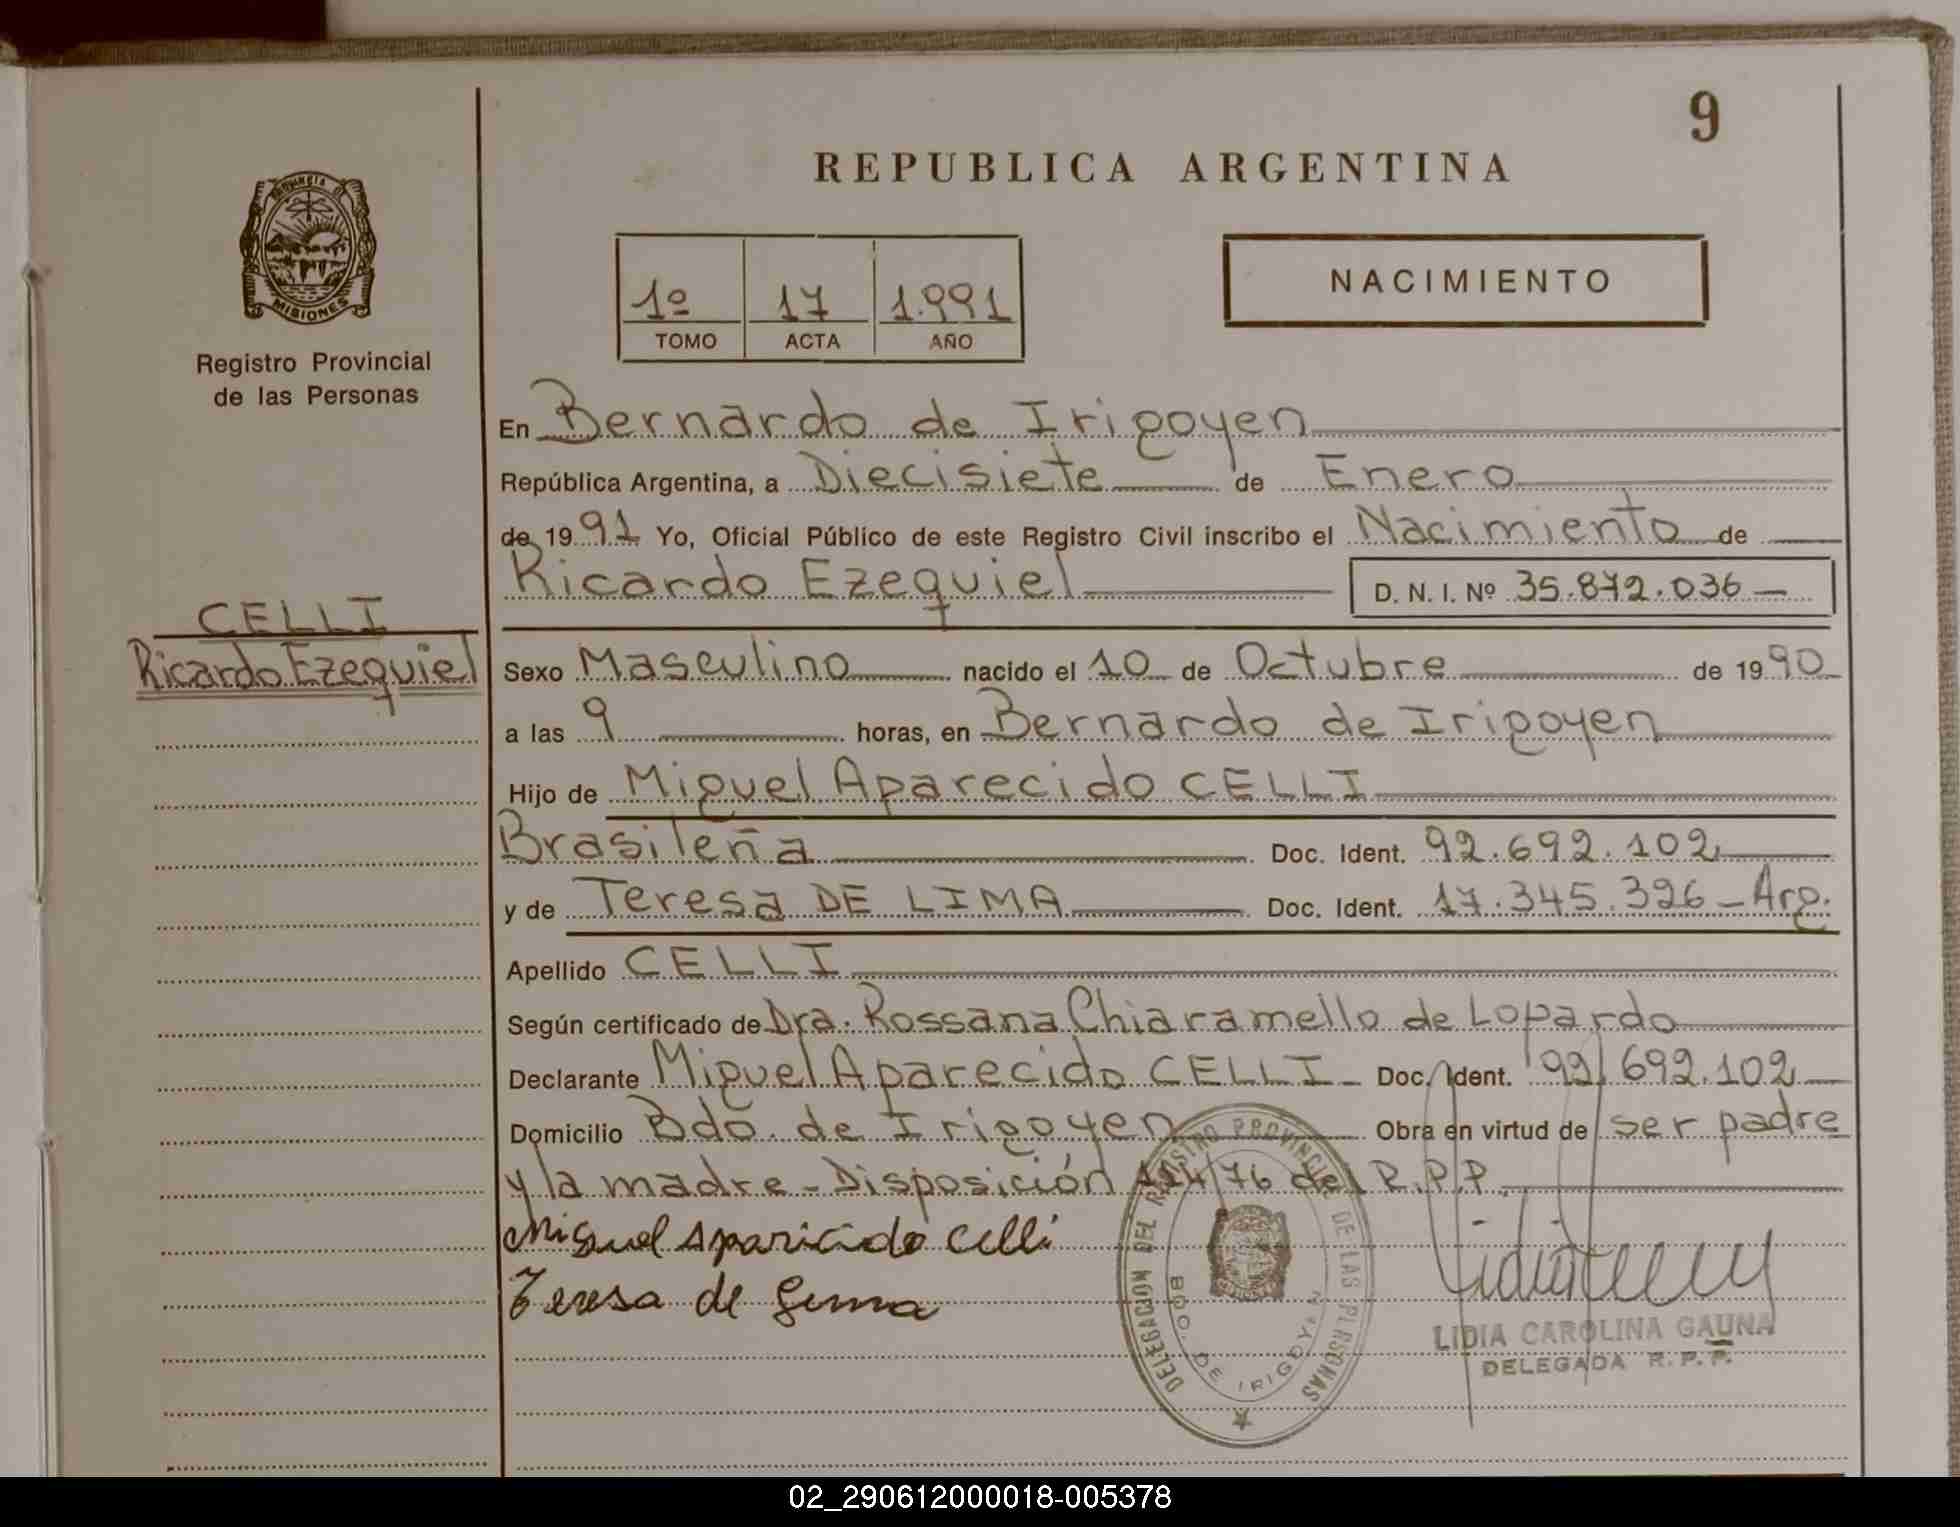 9
REPUBLICA ARGENTINA
PROVINCIA DE
MISIONES
Registro Provincial
de las Personas
1º 17 1.991
TOMO ACTA AÑO
NACIMIENTO
En Bernardo de Irigoyen
República Argentina, a Diecisiete de Enero
de 1991 Yo, Oficial Público de este Registro Civil inscribo el Nacimiento de
Ricardo Ezequiel D. N. I. Nº 35.872.036
CELLI
Ricardo Ezequiel
Sexo Masculino nacido el 10 de Octubre de 1990
a las 9 horas, en Bernardo de Irigoyen
Hijo de Miguel Aparecido CELLI
Brasileña Doc. Ident. 92.692.102
y de Teresa DE LIMA Doc. Ident. 17.345.326 - Arg.
Apellido CELLI
Según certificado de Dra. Rossana Chiaramello de Lopardo
Declarante Miguel Aparecido CELLI Doc. Ident. 92.692.102
Domicilio Bdo. de Irigoyen Obra en virtud de ser padre
y la madre - Disposición 114/76 del R.P.P.
Miguel Aparicido Celli
Teresa de Lima
DELEGACION DEL REGISTRO PROVINCIAL DE LAS PERSONAS
BDO. DE IRIGOYEN
LIDIA CAROLINA GAUNA
DELEGADA R.P.P.
02_290612000018-005378